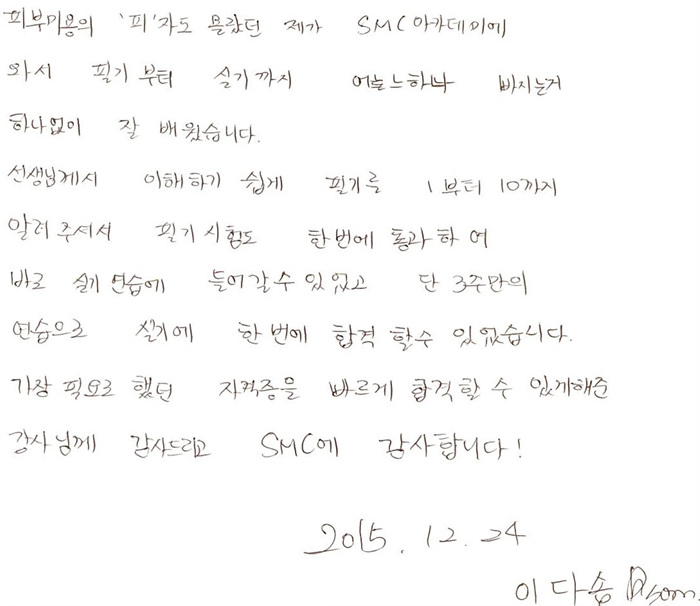 피부미용의 '피'자도 몰랐던 제가 SMC아카데미에
와서 필기부터 실기까지 어느하나 빠지는거
하나없이 잘 배웠습니다.
선생님께서 이해하기 쉽게 필기를 1부터 10까지
알려주셔서 필기시험도 한번에 통과하여
바로 실기연습에 들어갈수있었고 단 3주만의
연습으로 실기에 한번에 합격 할수 있었습니다.
가장 필요로 했던 자격증을 빠르게 합격할 수 있게해준
강사님께 감사드리고 SMC에 감사합니다!
2015. 12. 24
이다솜 Dsom